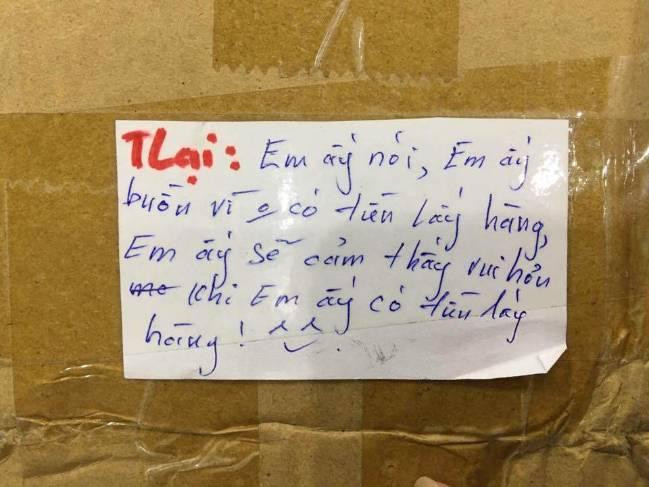 TLại: Em ấy nói, Em ấy
buồn vì o có tiền lấy hàng,
Em ấy sẽ cảm thấy vui hơn
khi Em ấy có tiền lấy
hàng! ^‿^.